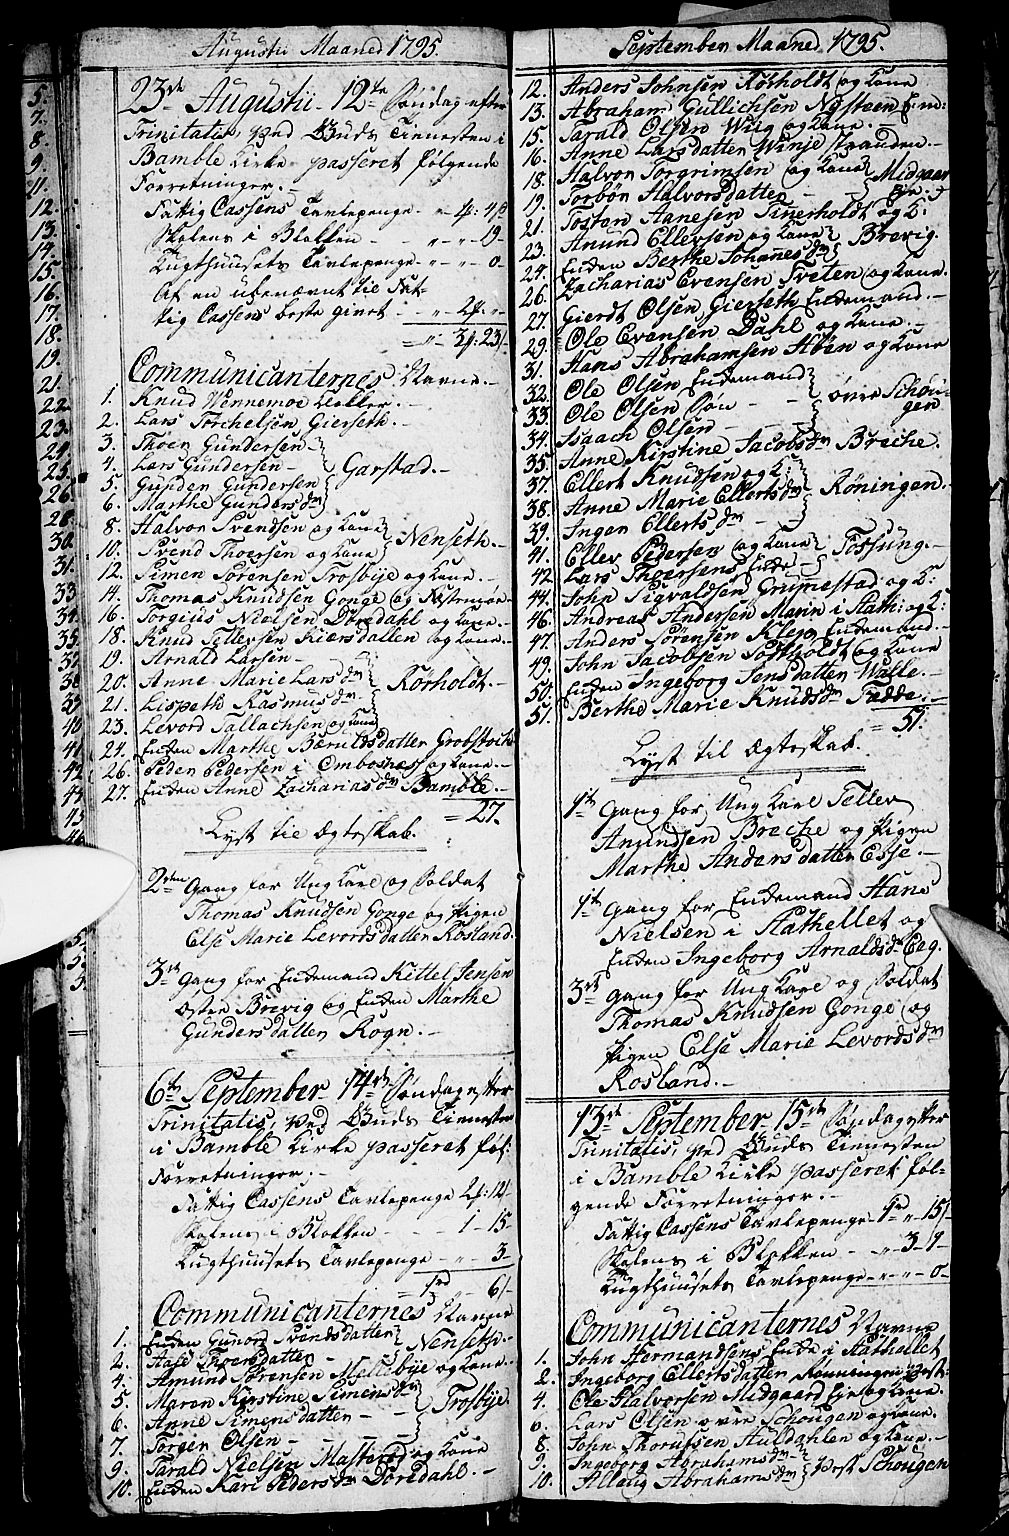 Augustii Maaned 1795.
23de Augustii 12te Søndag efter
Trinitatis, ved Guds Tienesten i
Bamble Kirke passeret følgende
Forretninger.
Fattig Cassens Tavlepenge
Skolens i Blokken
Tugthuusets Tavlepenge 0
Af en ubenævnt til Fat-
tig Cassens beste givet
Communicanternes Navne.
1. Knud Vennemoe
2. Lars Torchelsen Gierseth.
3. Thoer Gundersen
4. Lars Gundersen Garstad.
5. Gunder Gundersen
6. Marthe Gundersdr
8. Halvor Svendsen og Kone
10. Svend Thoersen og Kone Nenseth.
12. Simen Sørensen Trosbye og Kone.
14. Thomas Knudsen Gonge og Festemøe
16. Torgius Nielsen Dørdahl og Kone.
18. Knud Tellefsen Kiærsdallen og Kone.
19. Arnald Larsen
20. Anne Marie Larsdr Rørholdt.
21. Lispeth Rasmusdr
23. Levord Tallachsen og Kone
24. Enken Marthe Bærulsdatter Grobstoch
26. Peder Pedersen i Ombosnæs og Kone.
27. Enken Anne Zachariasdr Bamble.
= 27.
Lyst til Ægteskab.
2den Gang for Ung Karl og Soldat
Thomas Knudsen Gonge og Pigen
Else Marie Levordsdatter Rosland.
3de Gang for Enkemand Kittel Jensen
Øster Brevig og Enken Marthe
Gundersdatter Rogn.
6te September 14de Søndag efter
Trinitatis, ved Guds Tienesten
i Bamble Kirke passeret føl:
Forretninger.
Fattig Cassens Tavlepenge
Skolens i Blokken 1 15
Tugthuusets Tavlepenge 3
Communicanternes Navne
1. Enken Gunor Svendsdatter
2. Aase Thoersdatter Nenseth.
4. Amund Sørensen Mellebye og Kone.
5. Maren Kirstine Simensdr
6. Anne Simensdatter Trosbye.
7. Torger Olsen
9. Tarald Nielsen Masterød og Kone
10. Enken Kari Pedersdr Dørdahl.
September Maaned 1795.
12. Anders Johnsen Rørholdt og Kone
13. Abraham Gullichsen Nysteen Em:
15. Tarald Olsen Wiig og Kone.
16. Anne Larsdatter Winje Stranden.
18. Halvor Torgrimsen og Kone Midgaar
19. Torbør Halvorsdatter Eje.
21. Tosten Hanesen Tinerholdt og K:
23. Anund Ellefsen og Kone Brevig.
24. Enken Berthe Johannesdr
26. Zacharias Evensen Tveten og Kone.
27. Gierdt Olsen Gierseth Enkemand.
29. Ole Evensen Dahl og Kone.
31. Hans Abrahamsen Abøe og Kone
32. Ole Olsen Enkemand
33. Ole Olsen Søn øvre Schøu-
34. Isaach Olsen gen
35. Anne Kirstine Jacobsdr Breche.
37. Ellert Knudsen og K:
38. Anne Marie Ellertsdr Røningen.
39. Inger Ellertsdr
41. Ellev Pedersen og Kone Fossung.
42. Lars Thoersens Enke
44. John Sigvaldsen Grumestad og K:
46. Andreas Andersen Marin i Stath: og K:
47. Anders Sørensen Klep Enkemand.
49. John Jacobsen Postholdt og Kone
50. Enken Ingeborg Jensdatter Walle.
51. Berthe Marie Knudsdr Fadde.
= 51.
Lyst til Ægteskab.
1te Gang for Ung Karl Tellev
Anundsen Breche og Pigen
Marthe Andersdatter Esse.
1te Gang for Enkemand Hans
Nielsen i Stathellet og
Enken Ingeborg Arnaldsdr Eeg.
3de Gang for Ung Karl og Soldat
Thomas Knudsen Gonge og
Pigen Else Marie Levordsdr
Rosland.
13de September 15de Søndag efter
Trinitatis, ved Guds Tienesten
i Bamble Kirke passeret føl-
gende Forretninger.
Fattig Cassens Tavlepenge
Skolens i Blokken 3 9
Tugthuusets Tavlepenge 0
Communicanternes Navne
1. John Hermandsens Enke i Stathellet
2. Ingeborg Ellertsdatter Rønningen
4. Ole Halvorsen Midgaard Eje og Kone.
6. Lars Olsen øvre Schougen og Kone.
8. John Thorufsen Auldahlen og Kone.
9. Ingeborg Abrahamsdr
10. Alleug Abrahamsdr Schougen